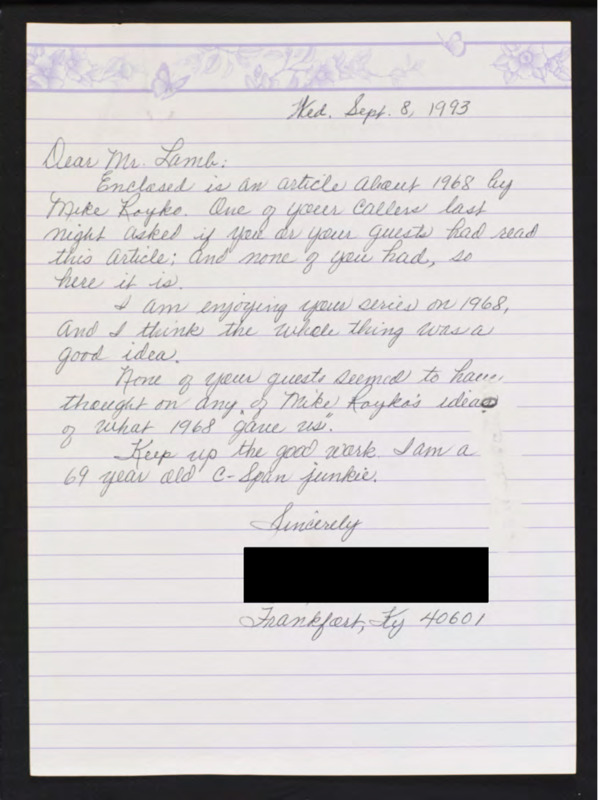 Wed. Sept. 8, 1993
Dear Mr. Lamb:
Enclosed is an article about 1968 by
Mike Royko. One of your callers last
night asked if you or your guests had read
this article; and none of you had, so
here it is.
I am enjoying your series on 1968,
and I think the whole thing was a
good idea.
None of your guests seemed to have
thought on any of Mike Royko's ideas
of what 1968 "gave us".
Keep up the good work. I am a
69 year old C-Span junkie.
Sincerely
Frankfort, Ky 40601